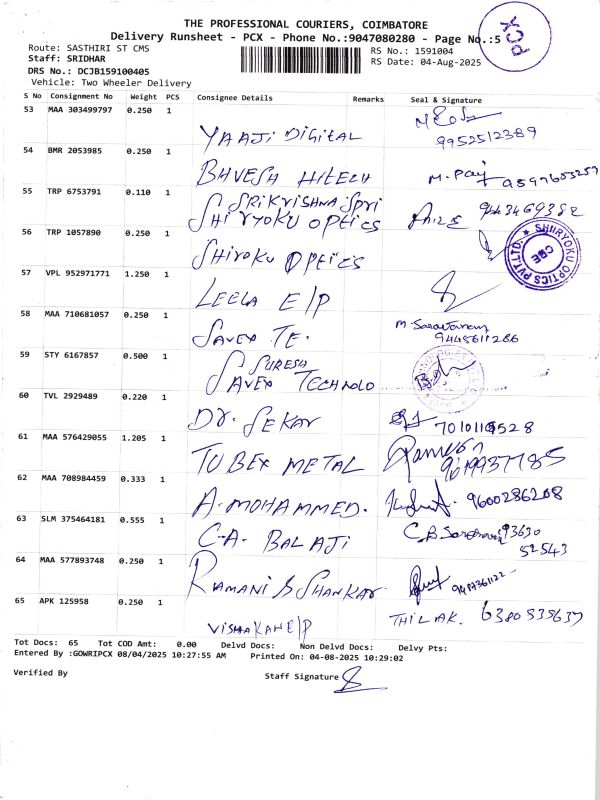 THE PROFESSIONAL COURIERS, COIMBATORE
Delivery Runsheet - PCX - Phone No.:9047080280 - Page No.:5
PCX
Route: SASTHIRI ST CMS
RS No.: 1591004
Staff: SRIDHAR
RS Date: 04-Aug-2025
DRS No.: DCJB159100405
Vehicle: Two Wheeler Delivery
S No Consignment No Weight PCS Consignee Details Remarks Seal & Signature
53 MAA 303499797 0.250 1
YAAJI DIGITAL 9952512389
54 BMR 2053985 0.250 1
BHVESH HITECH
55 TRP 6753791 0.110 1
SRIKRISHNA SPRI
SHIRYOKU OPTICS
56 TRP 1057890 0.250 1
SHIROKU OPTICS
SHIRYOKU OPTICS PVT.LTD. ★ CBE
57 VPL 952971771 1.250 1
LEELA E/P
58 MAA 710681057 0.250 1
SAVEX TE. M. Saravanan
9445611286
59 STY 6167857 0.500 1
SURESH
SAVEX TECHNOLO
60 TVL 2929489 0.220 1
DR. SEKAR
61 MAA 576429055 1.205 1
TUBEX METAL
62 MAA 708984459 0.333 1
A. MOHAMMED. 9600286208
63 SLM 375464181 0.555 1
C.A. BALAJI 93630
52543
64 MAA 577893748 0.250 1
RAMANI & SHANKAR
65 APK 125958 0.250 1
VISHAKAN E/P THILAK. 6380535637
Tot Docs: 65 Tot COD Amt: 0.00 Delvd Docs: Non Delvd Docs: Delvy Pts:
Entered By :GOWRIPCX 08/04/2025 10:27:55 AM Printed On: 04-08-2025 10:29:02
Verified By Staff Signature